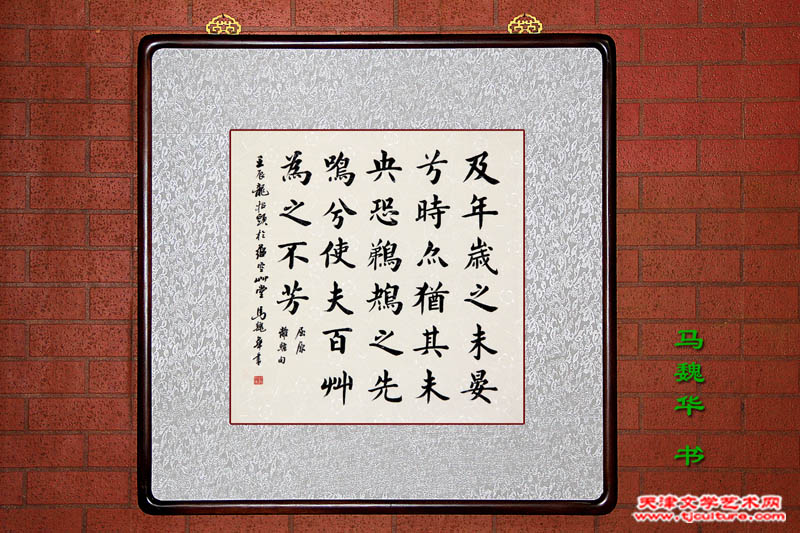 及年歲之未晏
兮時亦猶其未
央恐鵜鴂之先
鳴兮使夫百艸
為之不芳
屈原
離騷句
壬辰龍抬頭於空艸堂 馬魏華書
马魏华 书
天津文学艺术网
www.tjcultura.com